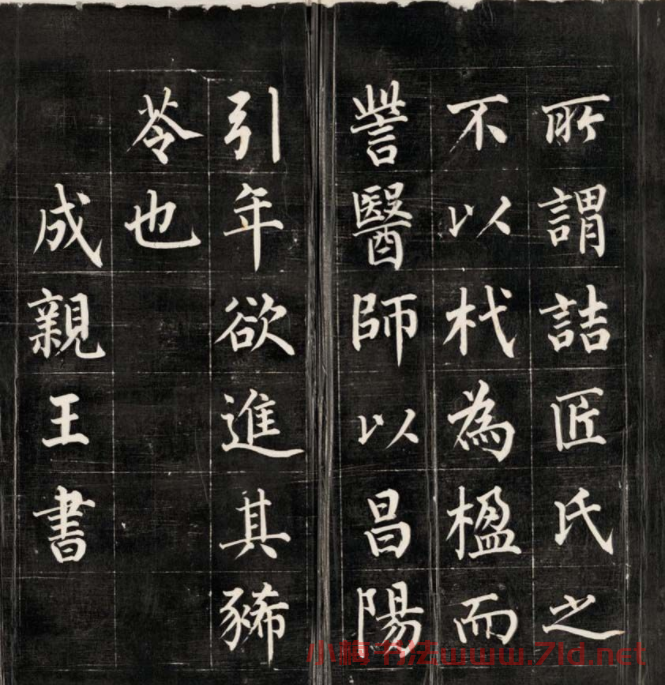 所謂詰匠氏之
不以杙為楹而
訾醫師以昌陽
引年欲進其豨
苓也
成親王書
小楷书法www.7ld.net